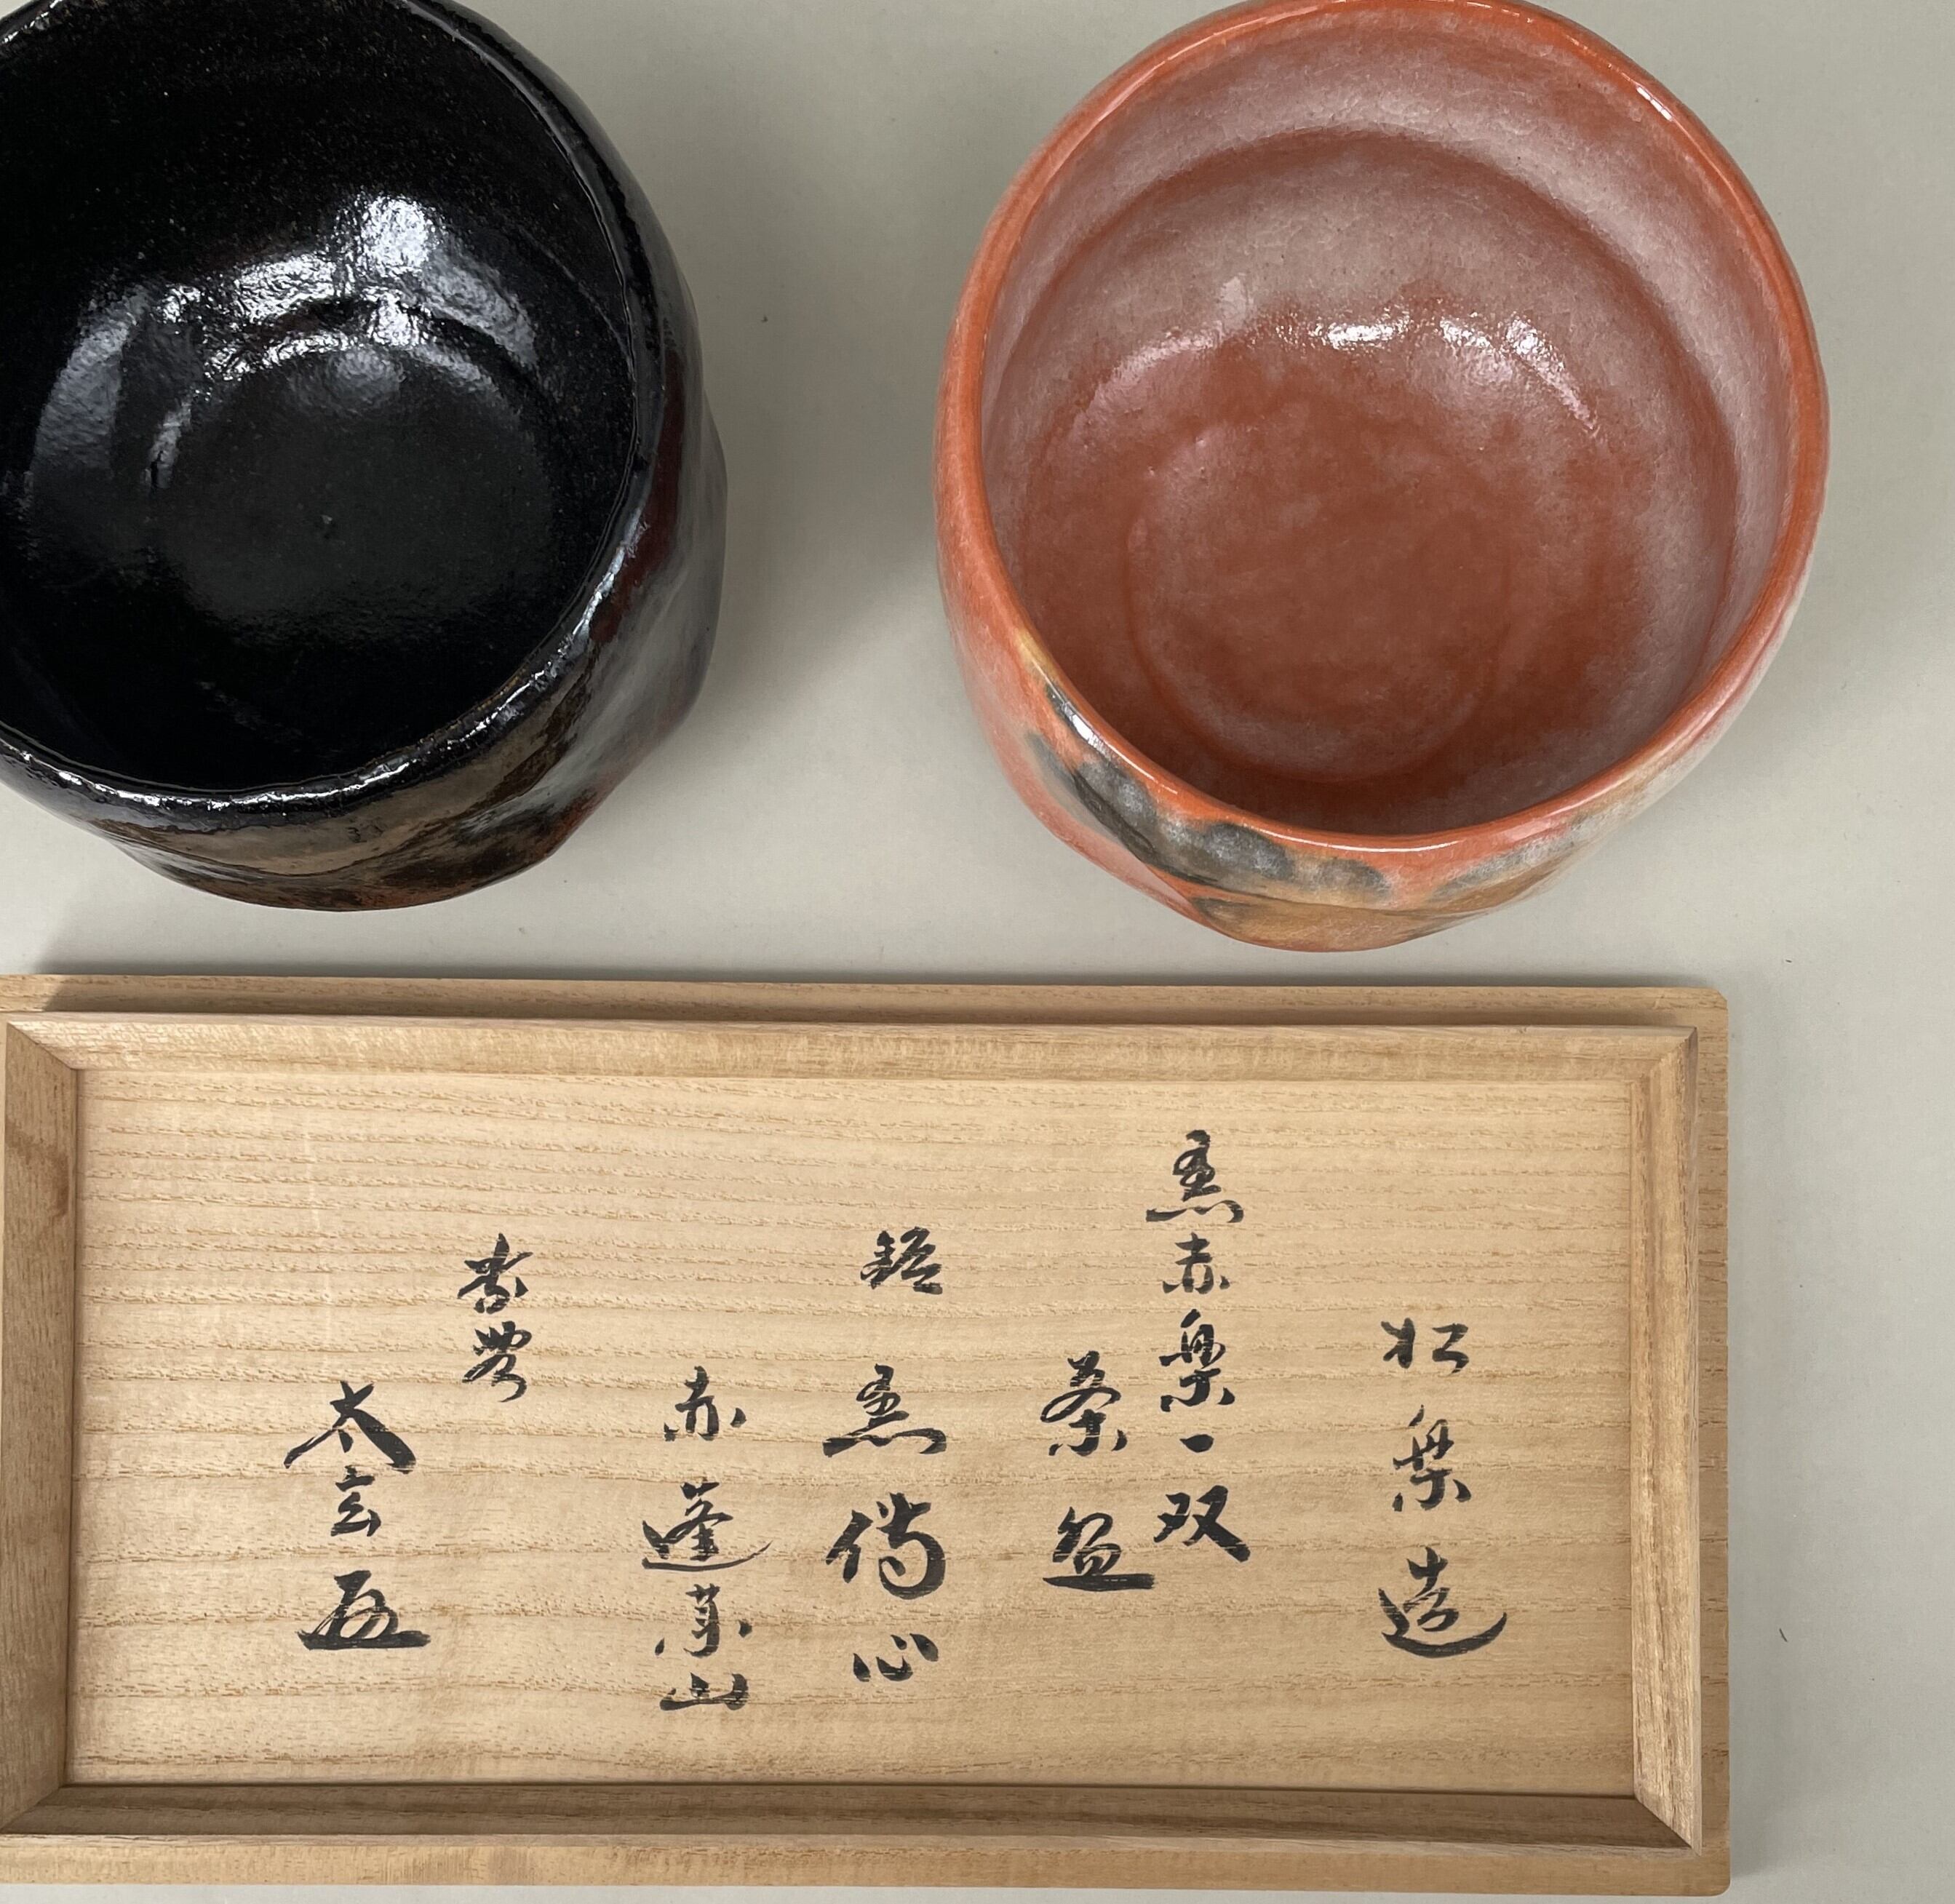 松楽造
黒赤楽一双
茶盌
銘 黒 心
赤 蓬莱山
紫野
太玄